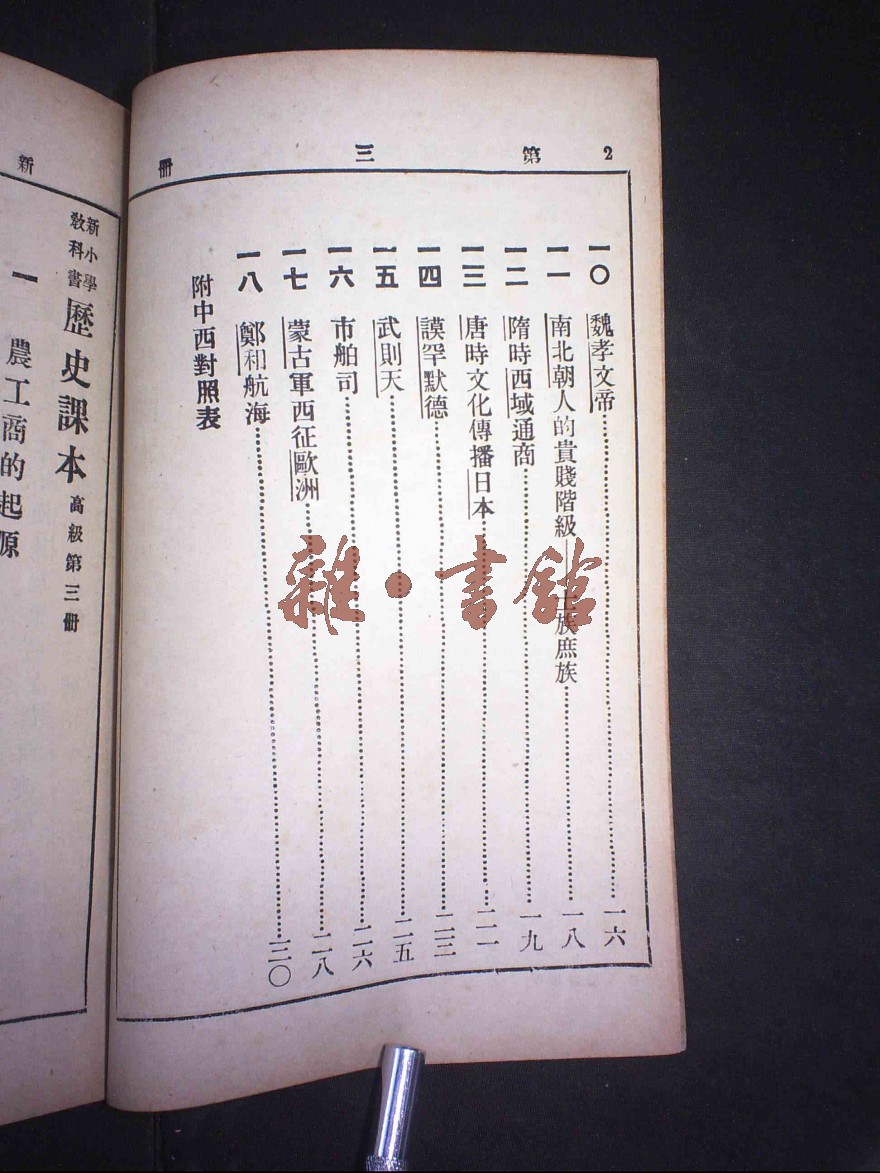 2 第三冊
一〇 魏孝文帝……一六
一一 南北朝人的貴賤階級——士族庶族……一八
一二 隋時西域通商……一九
一三 唐時文化傳播日本……二一
一四 謨罕默德……二三
一五 武則天……二五
一六 市舶司……二六
一七 蒙古軍西征歐洲……二八
一八 鄭和航海……三〇
附中西對照表
新
新小學教科書 歷史課本 高級第三冊
一 農工商的起源
雜·書館